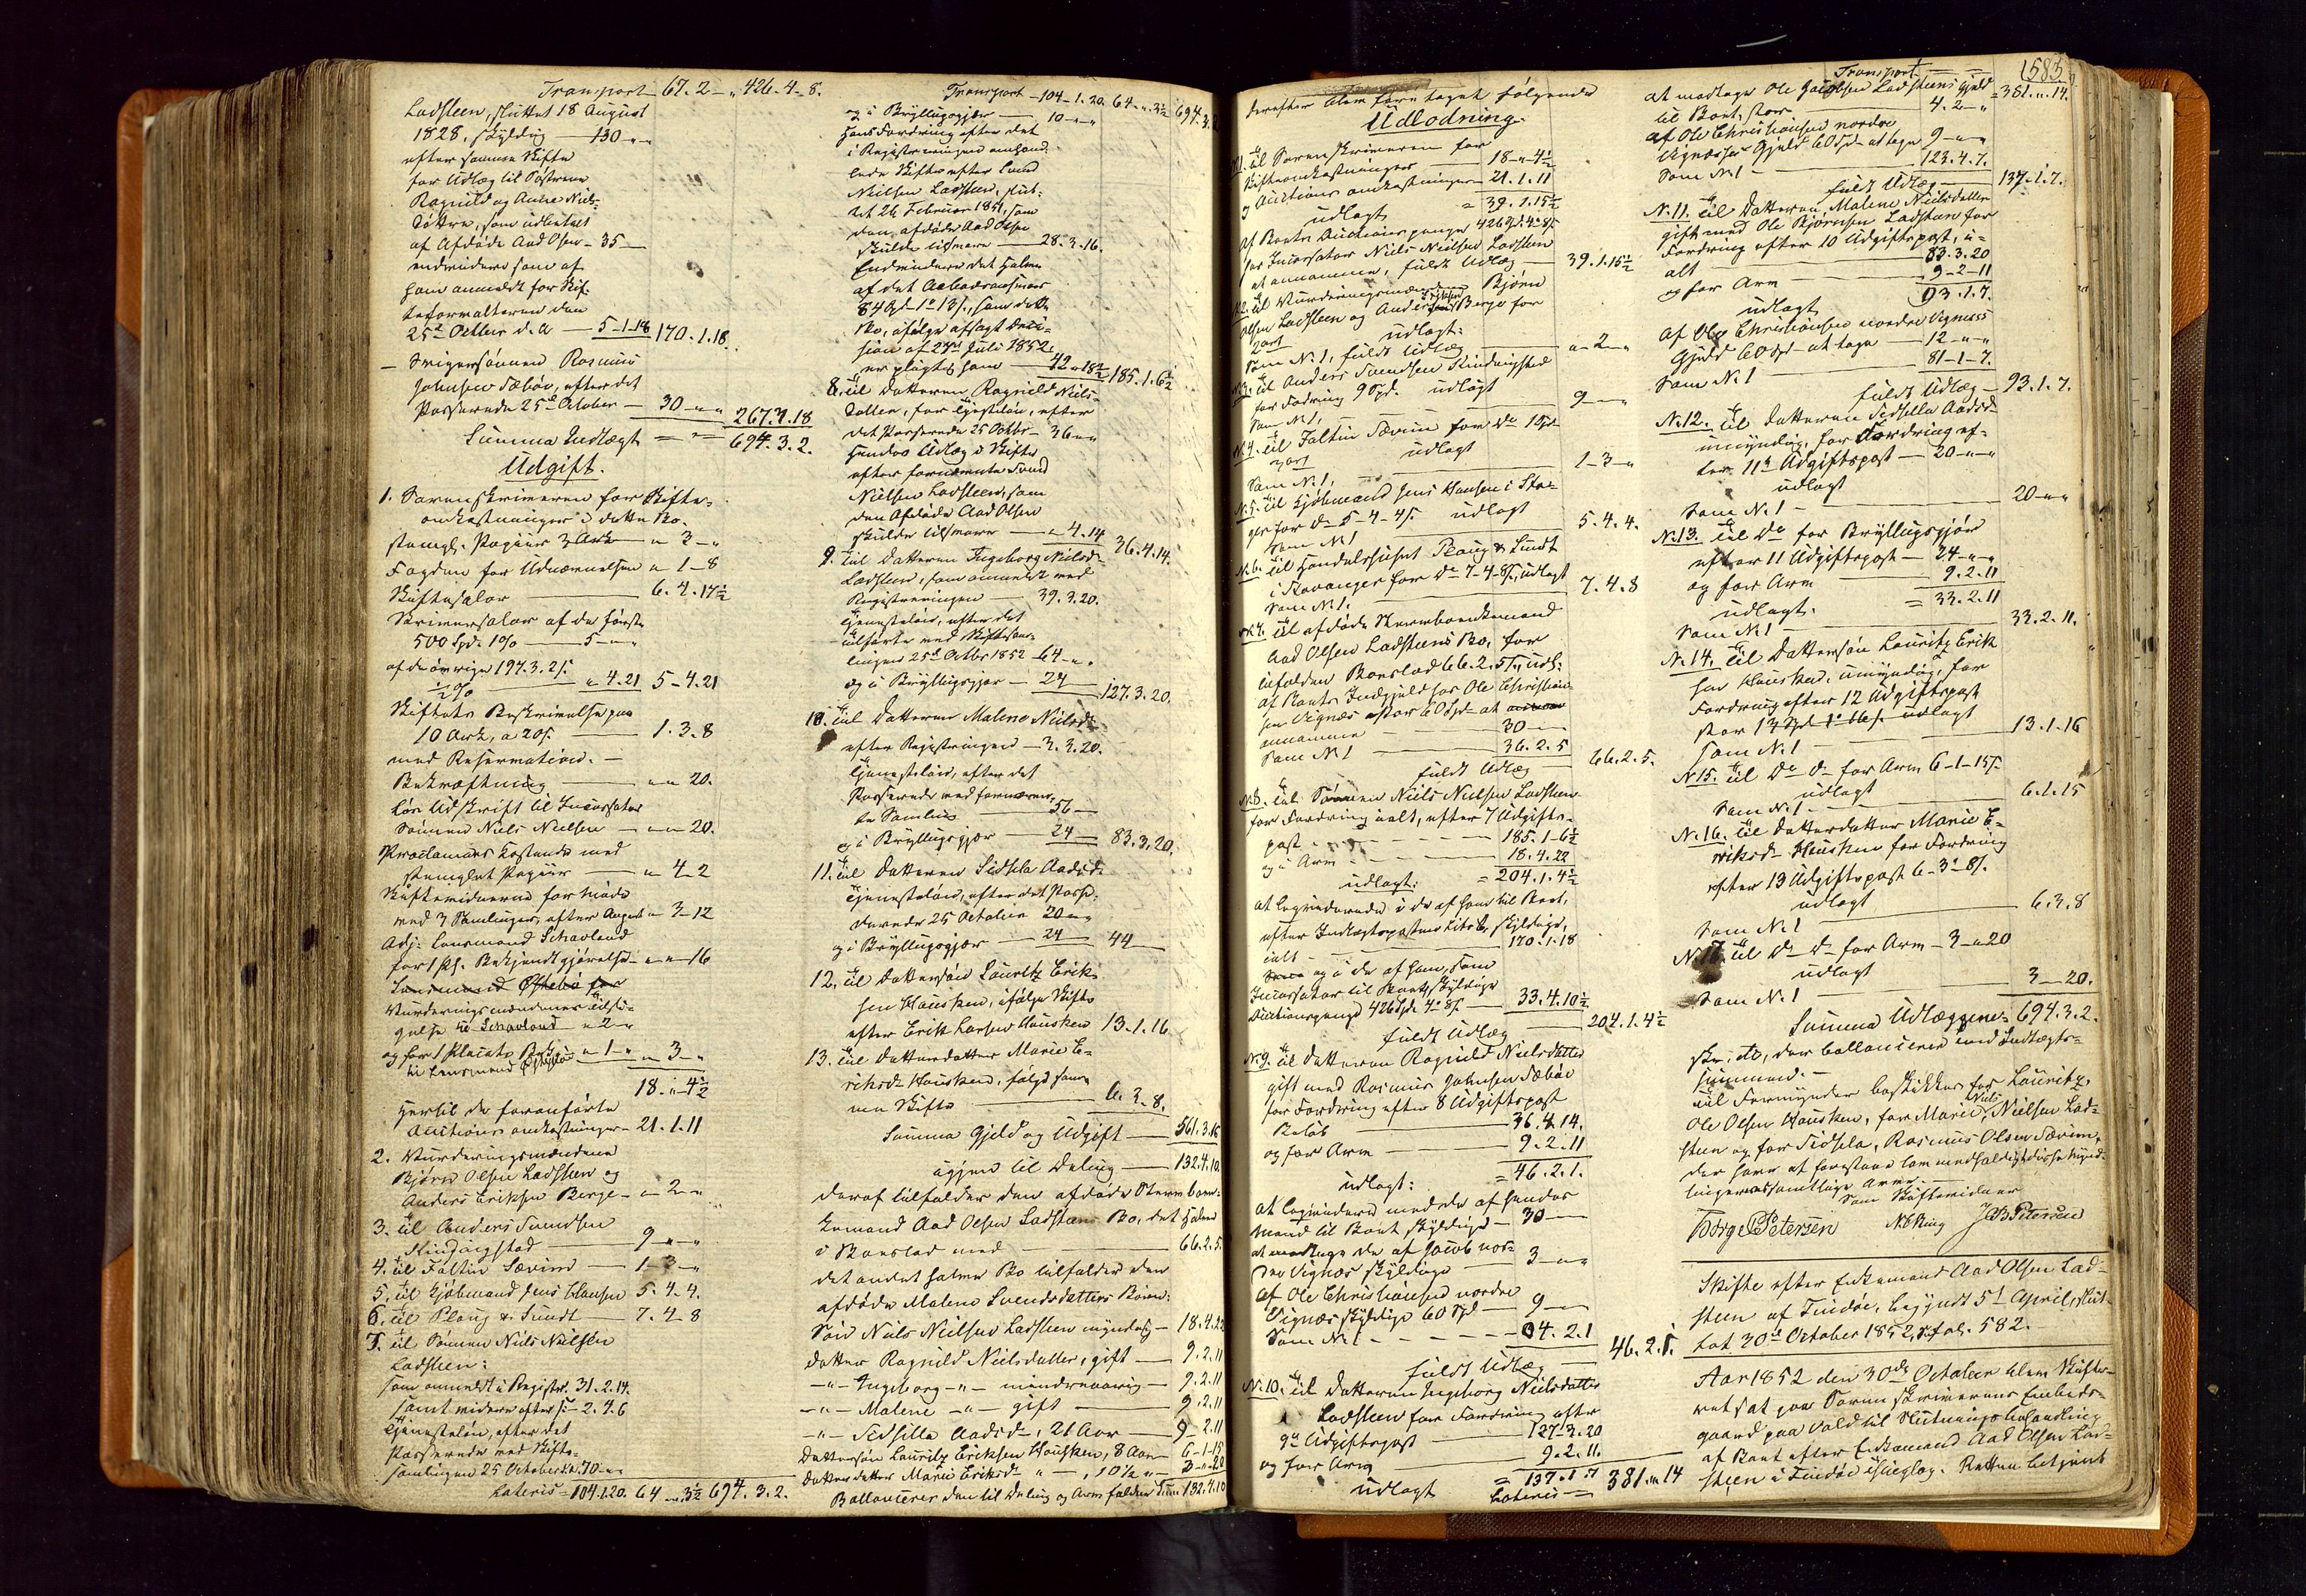 Transport 67. 2 - " 426. 4. 8.
Ladsteen, sluttet 18 August
1828, skyldig — 130 - "
efter samme Skifte
for Udlæg til Søstrene
Ragnild og Anne Niels-
døttre, som udlovet
af Afdøde Aad Olsen - 35 —
endvidere som af
ham anmeldt for Skif-
teforvalteren den
25de Octbr d. A. — 5-1-18 170. 1. 18.
— Svigersønnen Rasmus
Johnsen Sæbøe, efter det
Passerede 25de October — 30 - " - "
267. 4. 18
Summa Indtægt = 694. 3. 2.
Udgift.
1. Sorenskriveren for Skifte-
omkostninger i dette Bo.
stempl. Papiir 3 Ark — " 3 - "
Fogden for Udnævnelsen " 1 - 8
Skiftesalær — 6. 4. 17½
Skriversalær af de første
500 Spd. 1% — 5 - " - "
af de øvrige 194. 3. 2 s.
½% — " 4. 21 5 - 4. 21
Skiftets Beskrivelse paa
10 Ark, a 20 s. — 1. 3. 8
med Reservation. —
Bekræftning — " " 20.
løse Udskrift til Incassator
Sønnen Niels Nielsen — " " 20.
Proclamas Kostende med
stemplet Papiir — " 4 - 2
Skiftevidnerne for Møde
ved 3 Samlinger, efter August " 3 - 12
Adj: Lensmand Schavland
for 1 Kl. Bekjendtgjørelse " " 16
Lensmand Østebø for
Vurderingsmændenes Tilsi-
gelse til Schavland " 2 - "
og for 1 Placats Bek: " 1 - " " 3 - "
til Lensmand Østebø
18. " 4½
Hertil de foranførte
Auctions omkostninger — 21. 1. 11
2. Vurderingsmændene
Bjørn Olsen Ladsteen og
Anders Eriksen Berge — " 2 - "
3. til Anders Svendsen
Kindingstad — 9 - " - "
4. til Faltin Sævim — 1. 3 - "
5. til Kjøbmand Jens Hansen 5. 4. 4.
6. til Ploug & Sundt — 7. 4 - 8
7. til Sønnen Niels Nielsen
Ladsteen:
som anmeldt i Registr. 31. 2. 14.
samt videre efter — 2. 4. 6
Tjenesteløn, efter det
Passerede ved Skifte-
samlingen 25 October d. A. 70 - "
Lateris = 104. 1. 20. 64 - " 3½ 694. 3. 2.
Transport - 104 - 1. 20. 64 - " 3½ 694. 3. 2
og i Bryllupsgjær — 10 - "
Hans Fordring efter det
i Registreringen omhand-
lede Skifte efter Svend
Nielsen Ladsteen, slut-
tet 26 Februar 1851, som
den afdøde Aad Olsen
skulde tilsvare — 28. 3. 16.
Endvidere det halve
af det Aabodsansvar
84 Spd 1 - 13 s., som dette
Bo, ifølge afsagt Deci-
sion af 27de Juli 1852,
er plagtig ham — 42 " 18½ 185. 1. 6½
8. til Datteren Ragnild Niels-
datter, for Tjenesteløn, efter
det Passerede 25 Octbr — 36 - "
Hendes Udlæg i Skifte
efter fornævnte Svend
Nielsen Ladsteen, som
den Afdøde Aad Olsen
skulde tilsvare — " 4. 14 36. 4. 14.
9. til Datteren Ingeborg Nielsdr
Ladsteen, som anmeldt ved
Registreringen — 39. 3. 20.
Tjenesteløn, efter det
tilførte ved Skiftesam-
lingen 25de Octbr 1852 64 - " -
og i Bryllupsgjær — 24 — 127. 3. 20.
10. til Datteren Malene Nielsdr
efter Registringen — 3. 3. 20.
Tjenesteløn, efter det
Passerede ved fornævn-
te Samling — 56 —
og i Bryllupsgjær — 24 — 83. 3. 20.
11. til Datteren Sidsela Aadsdr
Tjenesteløn, efter det Passe-
rede 25 October 20 - "
og i Bryllupsgjær — 24 — 44 —
12. til Dattersøn Lauritz Erik-
sen Hausken, ifølge Skifte
efter Erik Larsen Hausken 13. 1. 16.
13. til Datterdatter Marie E-
riksdr Hausken, ifølge sam-
me Skifte — 6. 3. 8.
Summa Gjeld og Udgift — 561. 3. 16
igjen til Deling — 132. 4. 10.
Deraf tilfalder den afdøde Sterv boen-
kemand Aad Olsen Ladsteens Bo, det halve
i Boeslod med — 66. 2. 5.
det andet halve Bo tilfalder den
afdøde Malene Svendsdatters Børn:
Søn Niels Nielsen Ladsteen myndig — 18. 4. 22
Datter Ragnild Nielsdatter, gift — 9. 2. 11
— " — Ingeborg — " — mindreaarig — 9. 2. 11
— " — Malene — " — gift — 9. 2. 11
— " — Sidsilla Aadsdr, 21 Aar — 9 - 2. 11
Dattersøn Lauritz Eriksen Hausken, 8 Aar 6 - 1 - 15
Datterdatter Marie Eriksdr " — , 10½ " — 3 - " - 20
Ballancerer den til Deling og Arv faldne Sum 132. 4. 10
derefter blev foretaget følgende
Udlodning.
No 1. til Sorenskriveren for
Skifteomkostninger — 18 - " - 4½
og Auctions omkostninger — 21. 1. 11
udlagt = 39. 1. 15½
Af Boets Auctionspenge 426 Spd. 4. 8 s.
hos Incassator Niels Nielsen Ladsteen
at annamme, fuldt Udlæg — 39. 1. 15½
No 2. til Vurderingsmændene Bjørn
Olsen Ladsteen og Anders Eriksen Berge for
2 ort udlagt:
Som No. 1, fuldt Udlæg — " - 2 - "
No 3. til Anders Svendsen Kindingstad
for Fordring 9 Spd. udlagt
Som No 1, 9 - " - "
No 4. til Faltin Sævim for Do 1 Spd
3 ort udlagt
Som No. 1, 1 - 3 - "
No 5. til Kjøbmand Jens Hansen i Stavan-
ger for Do 5 - 4 - 4 s. udlagt
Som No 1 5. 4. 4.
No 6. til Handelshuset Ploug & Sundt
i Stavanger for Do 7 - 4 - 8 s., udlagt
Som No 1. 7. 4. 8
No 7. til afdøde Stervboenkemand
Aad Olsen Ladsteens Bo, for
tilfalden Boeslod 66. 2. 5 s., udl:
af Boets Indgjeld hos Ole Christian-
sen Vignæs stor 60 Spd at
annamme — 30 —
Som No 1 — 36. 2. 5
fuldt Udlæg — 66. 2. 5.
No 8. til Sønnen Niels Nielsen Ladsteen
for Fordring ialt, efter 7 Udgifts-
post — 185. 1 - 6½
og i Arv — 18. 4. 22
udlagt: = 204. 1. 4½
at liqvidere i de af ham til Boet,
efter Indtægtspostens Litr , skyldige,
ialt — 170. 1. 18
og i de af ham, som
Incassator til Boet, skyldige
Auctionspenge 426 Spd. 4. 8 s. — 33. 4. 10½
fuldt Udlæg — 204. 1. 4½
No 9. til Datteren Ragnild Nielsdatter
gift med Rasmus Johnsen Sæbøe
for Fordring efter 8 Udgiftspost
Beløb — 36. 4. 14.
og for Arv — 9. 2. 11
udlagt: = 46. 2. 1.
at liqvidere med de af hendes
Mand til Boet skyldige — 30 —
at modtage de af Jacob nor-
dre Vignæs skyldige — 3 - " - "
af Ole Christiansen nordre
Vignæs skyldige 60 Spd — 9 — "
Som No. 1 — 04. 2. 1
fuldt Udlæg — 46. 2. 1.
No 10. til Datteren Ingeborg Nielsdatter
Ladsteen for Fordring efter
9de Udgiftspost — 127. 3. 20
og for Arv 9. 2. 11.
udlagt = 137. 1. 7
Lateris = 381. " 14
583.
Transport = 381. " 14.
at modtage Ole Ladsteens Gjeld
til Boet, stor — 4. 2 - "
af Ole Christiansen nordre
Vignæsses Gjeld 60 Spd at tage 9 - " - "
Som No 1 — 123. 4. 7.
fuldt Udlæg — 137. 1. 7.
No. 11. til Datteren Malene Nielsdatter
gift med Ole Bjørnsen Ladsteen for
Fordring efter 10 Udgiftspost, i-
alt — 83. 3. 20
og for Arv — 9 - 2 - 11
udlagt 93. 1. 7.
Af Ole Christiansen nordre Vignæss
Gjeld 60 Spd at tage — 12 - " - "
Som No 1 — 81 - 1 - 7.
fuldt Udlæg — 93. 1. 7.
No. 12. til Datteren Sidsella Aadsdr
umyndig, for Fordring ef-
ter 11te Udgiftspost — 20 - " - "
udlagt
Som No 1 — 20 - " - "
No. 13. til Do for Bryllupsgjær
efter 11 Udgiftspost — 24 - " - "
og for Arv — 9. 2. 11
udlagt. = 33. 2. 11
Som No 1 — 33. 2. 11.
No. 14. til Dattersøn Lauritz Erik-
sen Hausken, umyndig, for
Fordring efter 12 Udgiftspost
stor 13 Spd 1 - 16 s. udlagt
Som No. 1 — 13. 1. 16
No 15. til Do Do for Arv 6 - 1 - 15 s.
udlagt
Som No. 1 — 6. 1. 15
No. 16. til Datterdatter Marie E-
riksdr Hausken for Fordring
efter 13 Udgiftspost 6 - 3 - 8 s.
udlagt
Som No. 1 — 6. 3. 8
No. 17. til Do Do for Arv — 3 - " 20
udlagt
Som No. 1 — 3 — 20.
Summa Udlæggene = 694. 3. 2.
skr: etc, der ballancerer med Indtægts-
summen. —
til Formynder beskikkes for Lauritz,
Ole Olsen Hausken, for Marie, Niels Nielsen Lad-
steen og for Sidsela, Rasmus Olsen Sævim,
der have at forestaae lovmedholdigt disse Mynd-
lingers samtlige Arve. —
Som Skiftevidner
Børge Petersen N B Ring J B Petersen
Skifte efter Enkemand Aad Olsen Lad-
steen af Findøe, begyndt 5te April, slut-
tet 30te October 1852, s. fol. 582.
Aar 1852 den 30de October blev Skifte-
ret sat paa Sorenskriverens Embeds-
gaard paa Vold til Slutningsbehandling
af Boet efter Enkemand Aad Olsen Lad-
steen i Findøe Thinglag. Retten betjent